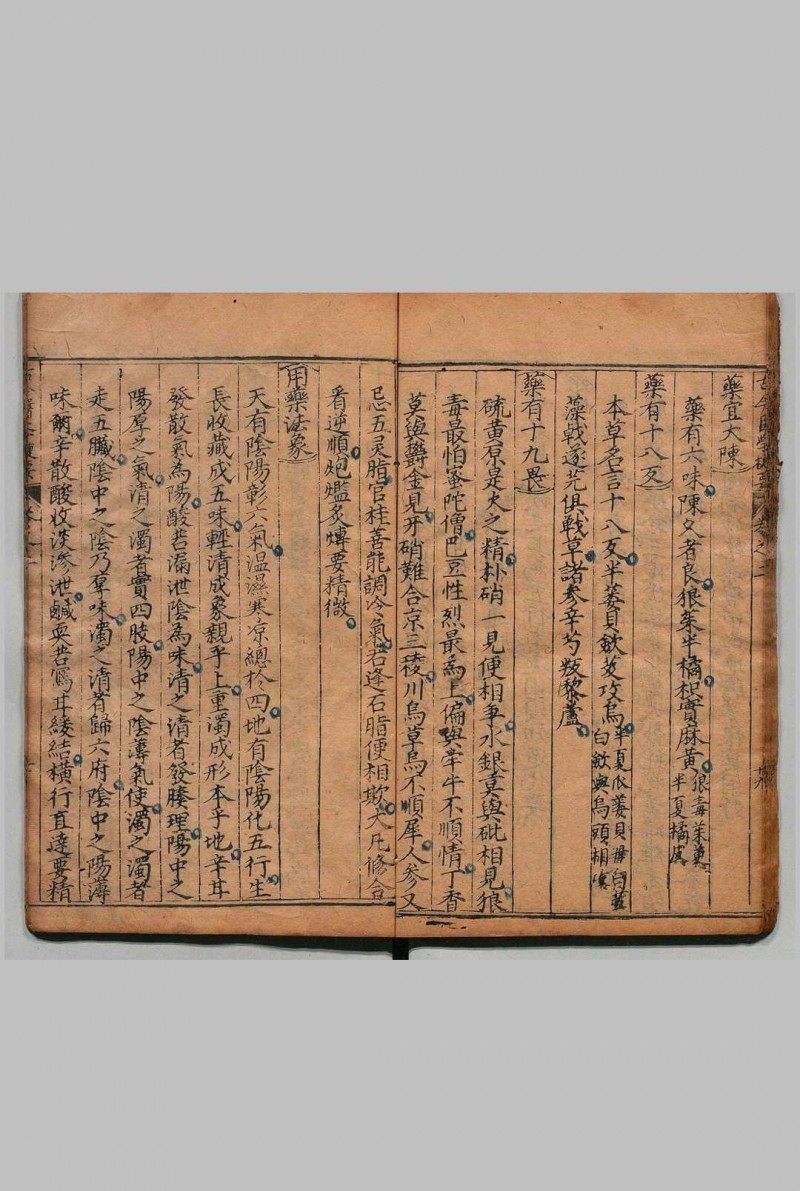 藥宜大陳
藥有六味陳久者良狼茱半橘枳實麻黃狼毒茱萸半夏橘皮
藥有十八反
本草名言十八反半蔞貝蘞芨攻烏半夏瓜蔞貝母白芨白蘞與烏頭相
藻戟遂芫俱戰草諸參辛芍叛藜蘆
藥有十九畏
硫黃原是火之精朴硝一見便相爭水銀莫與砒相見狼
毒最怕蜜陀僧巴豆性烈最為上偏與牽牛不順情丁香
莫與欝金見牙硝難合京三稜川烏草烏不順犀人參又
忌五灵脂官桂善能調冷氣若逢石脂便相欺大凡修合
看逆順炮爁炙煿要精微
用藥法象
天有陰陽彰六氣溫濕寒凉總於四地有陰陽化五行生
長收藏成五味輕清成象親乎上重濁成形本乎地辛甘
發散氣為陽酸苦漏泄陰為味清之清者發腠理陽中之
陽厚之氣清之濁者實四肢陽中之陰薄氣使濁之濁者
走五臟陰中之陰乃厚味濁之清者歸六府陰中之陽薄
味辛散酸收淡滲泄鹹耎苦瀉甘緩結橫行直達要精